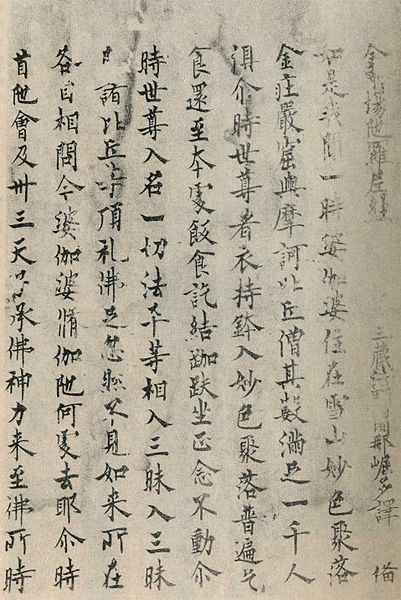 金剛場陀羅尼經 三藏法師闍那崛多譯 備
如是我聞一時婆伽婆住在雪山妙色聚落
金庄嚴窟與摩訶比丘僧其數滿足一千人
俱尒時世尊著衣持鉢入妙色聚落普遍乞
食還至本處飯食訖結跏趺坐正念不動尒
時世尊入名一切法平等相入三昧入三昧
已諸比丘等頂礼佛足忽然不見如来所在
各自相問今婆伽婆脩伽陁何處去耶尒時
首陁會及卅三天以承佛神力来至佛所時